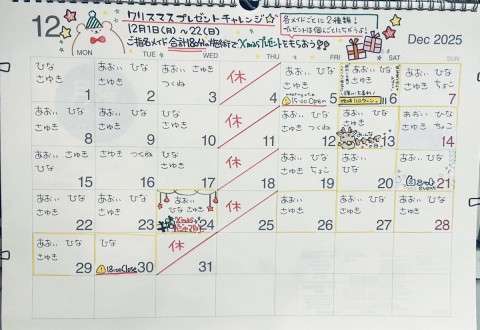 12
クリスマスプレゼントチャレンジ☆
12月1日(月)〜22(日)
ご指名メイド合計18h以上指名でXmasプレゼントをもらおう
各メイドごとに2種類!
プレゼントは個人ごとにちがうよ!
Dec 2025
MON TUE WED THU FRI SAT SUN
ひな さゆき 1
あおい ひな さゆき 2
あおい さゆき つくね 3
休 4
あおい ひな さゆき 15:00 Open 5
あおい ひな さゆき 6
ひな さゆき ちょこ 7
あおい ひな さゆき 8
あおい ひな さゆき 9
ひな さゆき 10
休 11
あおい ひな さゆき つくね 12
あおい ひな さゆき 13
あおい ひな さゆき ちょこ 14
あおい ひな 15
さゆき つくね 16
あおい さゆき ひな つくね 17
休 18
あおい ひな さゆき ちょこ 19
あおい ひな さゆき 20
あおい さゆき 21
あおい ひな さゆき 22
あおい さゆき 23
あおい ひな さゆき Xmas 24
休 25
あおい さゆき 26
あおい ひな さゆき 27
あおい ひな さゆき 28
あおい ひな さゆき 29
ひな 18:00 Close 30
休 31